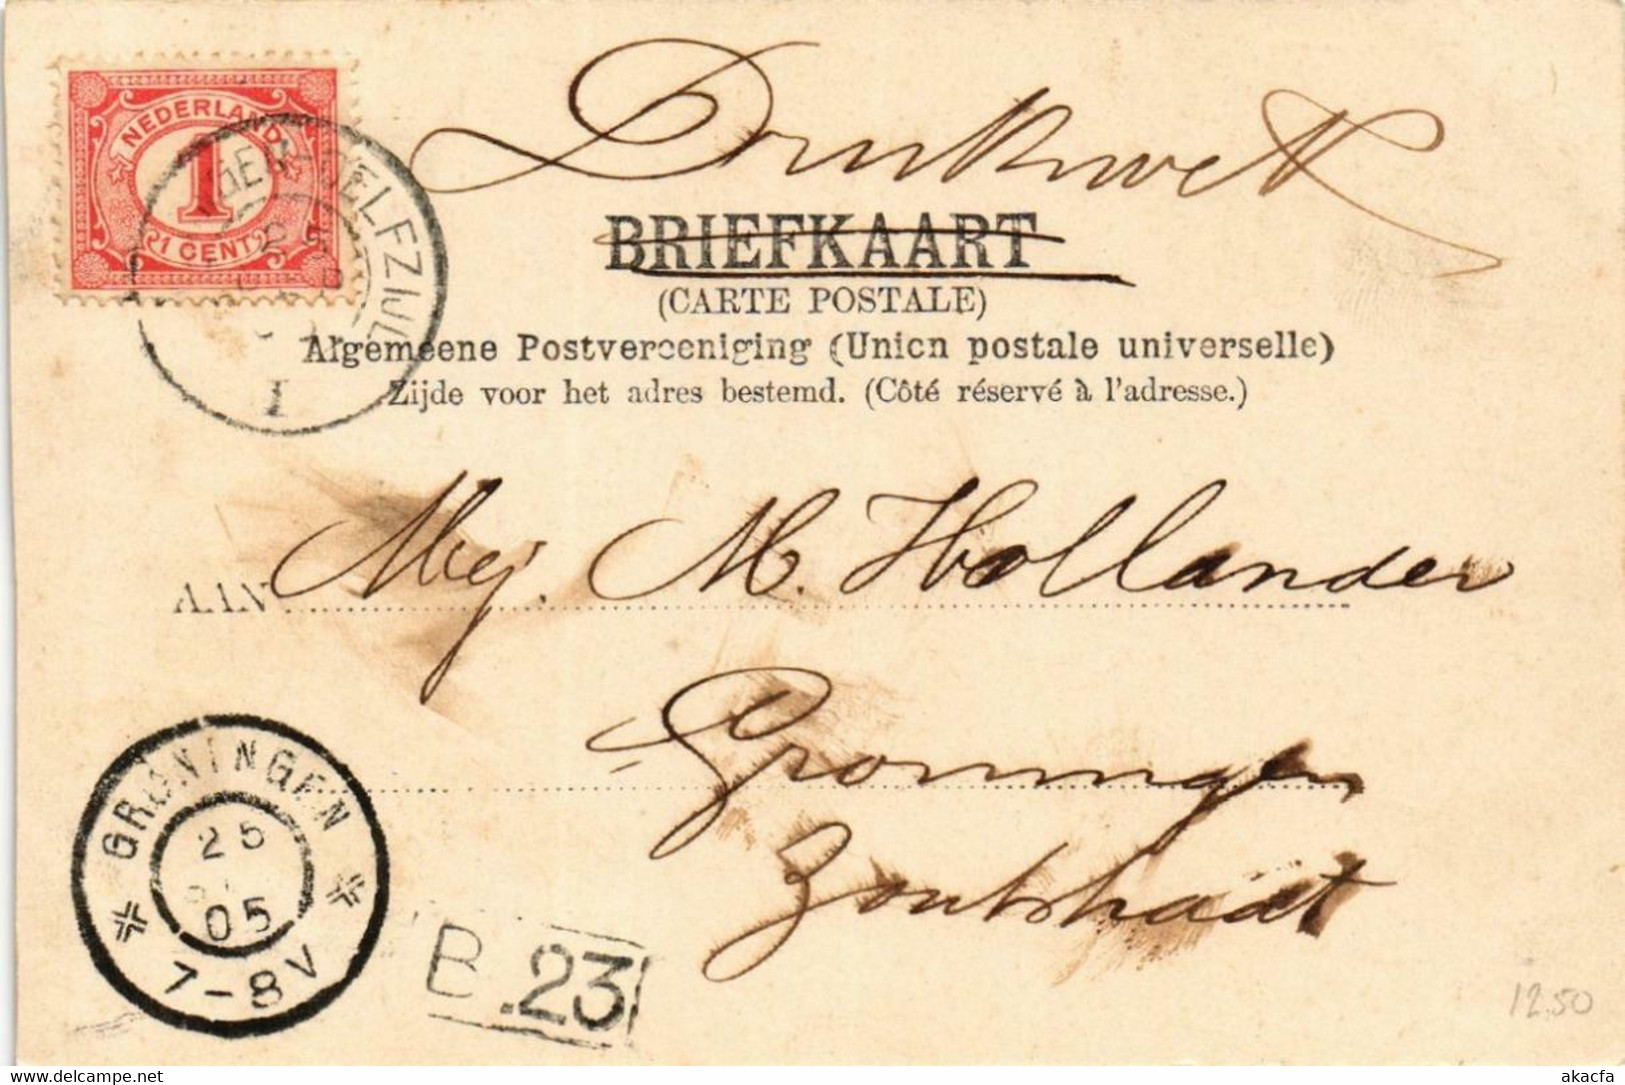 Drukwerk
NEDERLAND
1
1 CENT
DELFZIJL
I
BRIEFKAART
(CARTE POSTALE)
Algemeene Postvereeniging (Union postale universelle)
Zijde voor het adres bestemd. (Côté réservé à l'adresse.)
AAN
Mej. M. Hollander
Groningen
GRONINGEN
25
05
7-8V
B.23
12,50
delcampe.net
akacfa